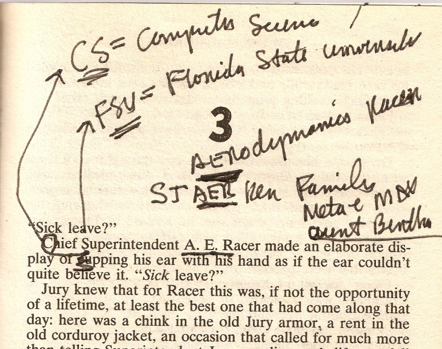 CS = Computer Science
FSU = Florida State University
3
AERodymanics Racer
STAER Ken Family
Meta e MAX
aunt Bertha
"Sick leave?"
Chief Superintendent A. E. Racer made an elaborate dis-
play of cupping his ear with his hand as if the ear couldn't
quite believe it. "Sick leave?"
Jury knew that for Racer this was, if not the opportunity
of a lifetime, at least the best one that had come along that
day: here was a chink in the old Jury armor, a rent in the
old corduroy jacket, an occasion that called for much more
than telling Superintendent Jury